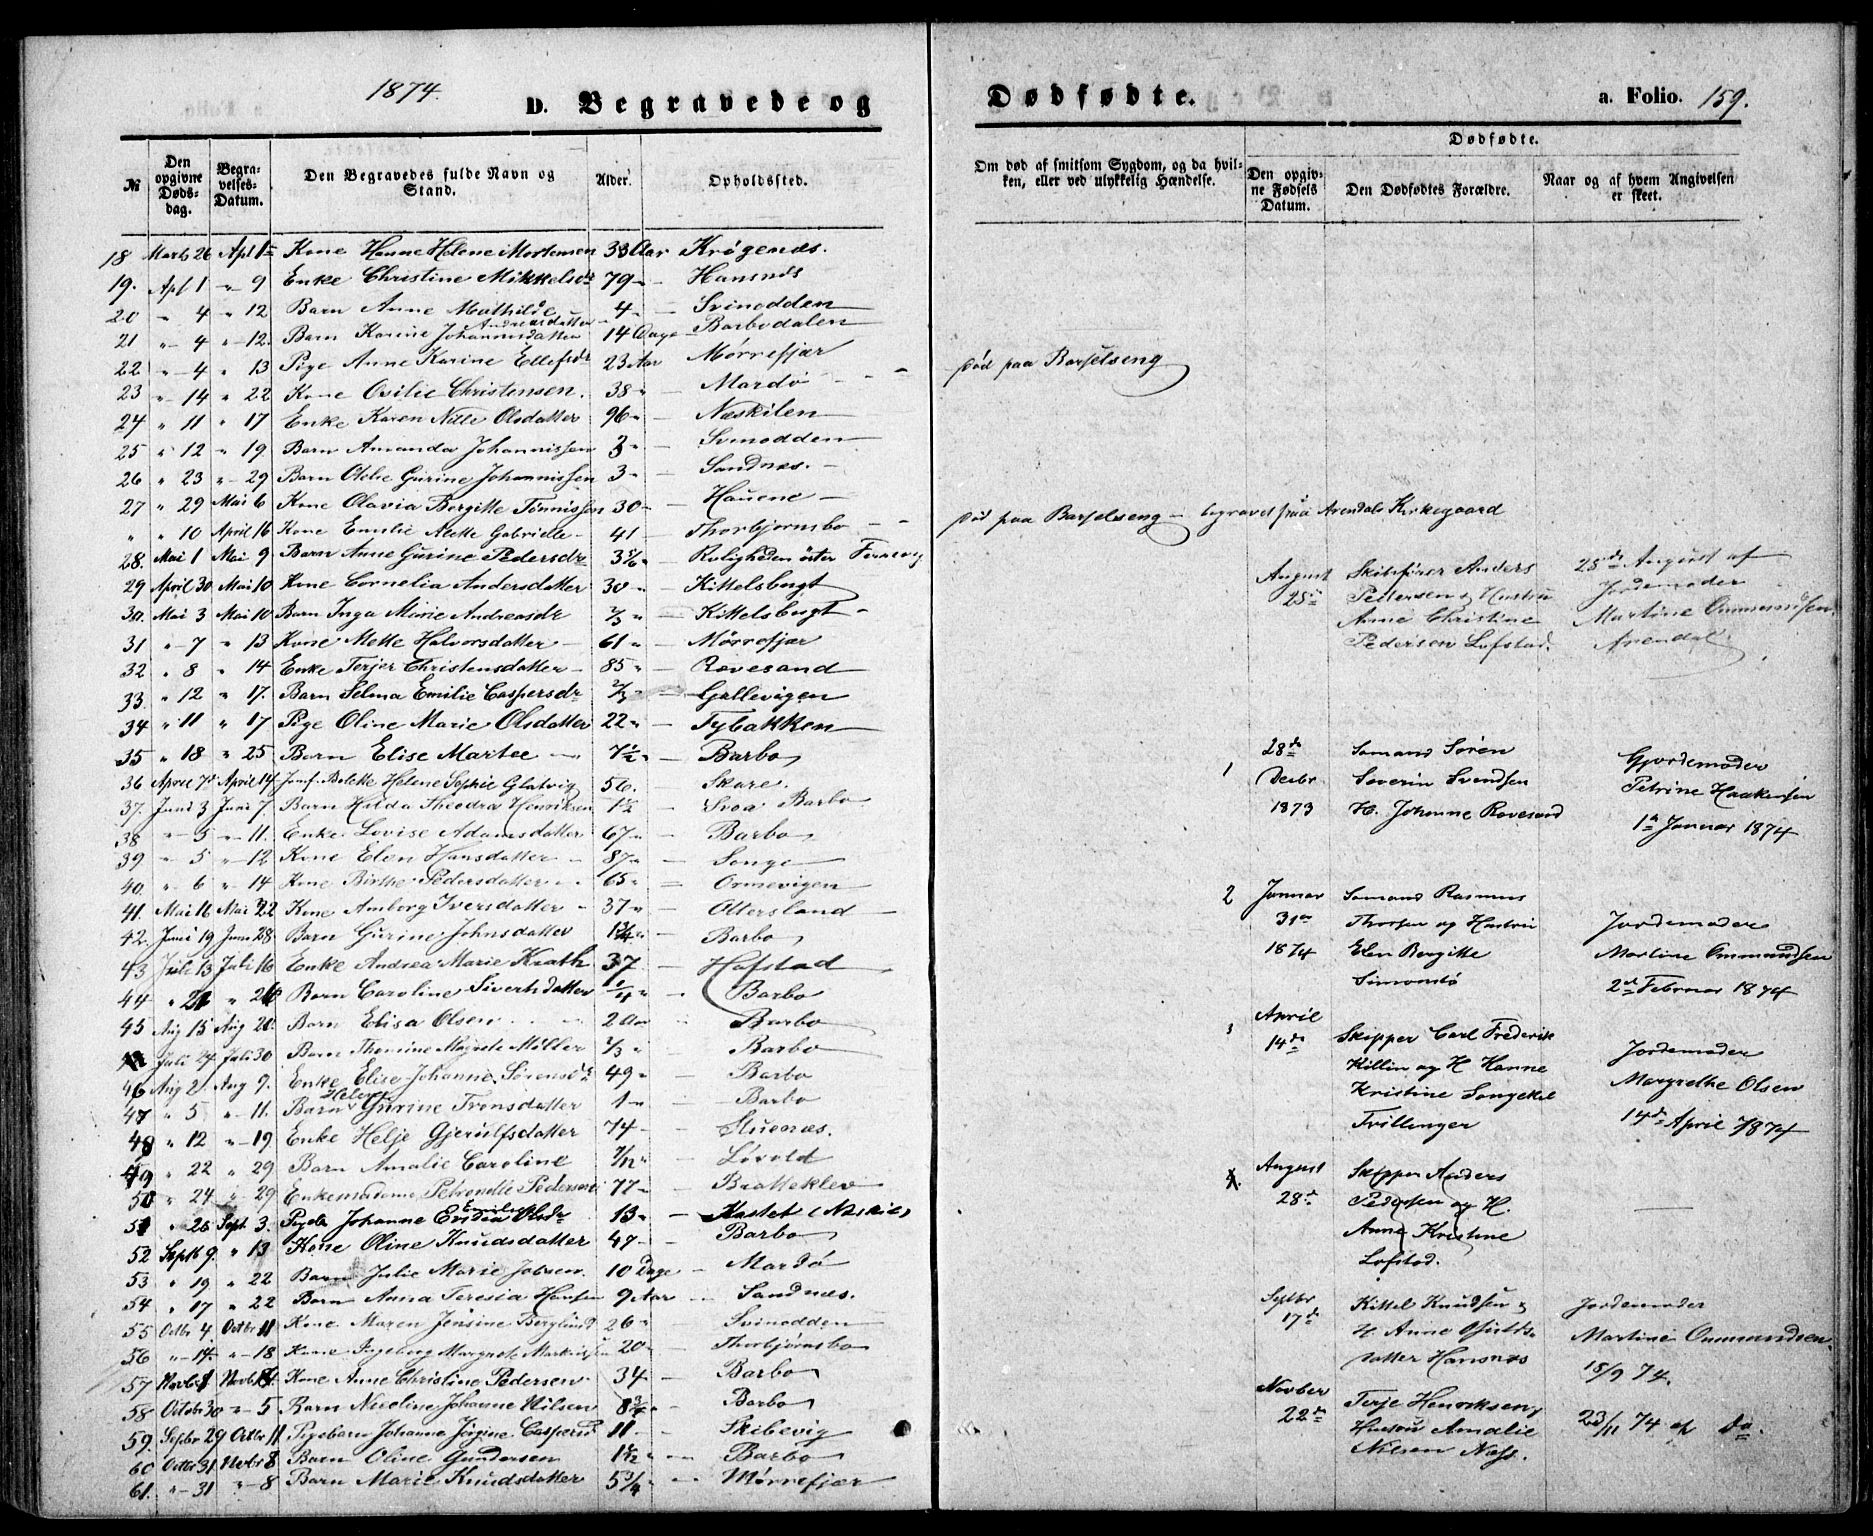 1874.
D. Begravede og
Dødfødte.
a. Folio. 159.
№
Den opgivne Døds-dag.
Begra-velses-Datum.
Den Begravedes fulde Navn og Stand.
Alder.
Opholdssted.
Om død af smitsom Sygdom, og da hvil-ken, eller ved ulykkelig Hændelse.
Dødfødte.
Den opgiv-ne Fødsels Datum.
Den Dødfødtes Forældre.
Naar og af hvem Angivelsen er skeet.
18 Marts 26 Apl 1ste Kone Hanne Helene Mortensen 33 Aar Krøgenæs.
19. Apl 1 " 9 Enke Christine Mikkelsdr 79 " Hansnæs
20 " 4 " 12 Barn Anne Mathilde 4 " Svinodden
Andreasdatter
21 " 4 " 12. Barn Karine Johannisdatter 14 Dage Barbodalen
22 " 4 " 13 Pige Anne Karine Ellefsdr 23 Aar Mørrefjær
23 " 14 " 22 Kone Osilie Christensen. 38 " Mardø
24 " 11 " 17 Enke Karen Nille Olsdatter 96 " Næskilen
25 " 12 " 19. Barn Amanda Johannissen 3 " Svinodden
26 " 23 " 29 Barn Gurine Johannissen 3 " Sandnæs.
27 " 29 Mai 6 Kone Olavia Bergitte Tønnissen 30 " Hauene
" " 10 April 16 Kone Emilie Alette Gabrielle 41 Thorbjørnsbo
28. Mai 1 Mai 9 Barn Anne Gurine Pedersdr Roligheden øster
29 April 30 Mai 10 Kone Cornelia Andersdatter 30 " Kittelsbugt
30. Mai 3 Mai 10 Barn Inga Marie Andreasdr 2/3 " Kittelsbugt
31 " 7 " 13 Kone Mette Halvorsdatter 61 " Mørrefjær
32 " 8 " 14 Enke Terjer Christensdatter 85 " Rovesand
33. " 12 " 17. Barn Selma Emilie Caspersdr 2/3 " Gallevigen
34 " 11 " 17 Pige Oline Marie Olsdatter 22 " Tybakken
35 " 18 " 25 Barn Elise Martee 7½ " Barbo
36 April 7d April 14 Jomf. Bolette Helene Sophie Glatvig 56. Skare.
37. Juni 3 Juni 7. Barn Hilda Theodra Henriksen 1½ Svoa Barbo
38 " 5 " 11. Enke Lovise Adamsdatter 67 " Barbo
39 " 5 " 12 Kone Elen Hansdatter 87 " Songe
40. " 6 " 14 Kone Birthe Pedersdatter 65 " Ormevigen
41. Mai 16 Mai 22 Kone Amborg Iversdatter 37 " Ottersland
42. Juni 19 Juni 28. Barn Gurine Johnsdatter Barbo
43 Juli 13 Juli 16 Enke Andrea Marie Krath 37 Hofstad
44 " 21 " 26 Barn Caroline Sivertsdatter ¼ " Barbo
45 Aug 15 Aug 20. Barn Elisa Olsen 2 Aar Barbo
Juli 24 Juli 30 Barn Thomine Magrete Møller 2/3 " Barbo
46 Aug 2. Aug 9. Enke Elise Johanne Sørensdr 49 " Barbo
Helene
47 " 5 " 11. Barn Gurine Tronsdatter 1 " Barbo
48 " 12 " 19 Enke Helje Gjerulfsdatter 74 Stuenæs.
49 " 22 " 29 Barn Amalie Caroline 7/12 " Løvold
50 " 24 " 29 Enkemadame Petronelle Pedersen 77 Bratteklev
51 " 28 Sept. 3. Johanne Olsdr 13 " Kastet
52 Septb 9. " 13 Kone Oline Knudsdatter 47 Barbo
53 " 19 " 22 Barn Julie Marie Jobsen. 10 Dage Mardø
54 " 17 " 22 Barn Anna Teresia Hansen 9 Aar Sandnæs.
55 Octbr 4. Octbr 11 Kone Maren Jensine Berglund 26 " Svinodden
56 " 14. " 18 Kone Ingeborg Margrete 20 " Thorbjørnsbo
57 Novbr 1 Novbr Kone Anne Christine Pedersen 34 " Barbo
58 Octobr 30 " 5 Barn Nicoline Johanne Nilsen 8¾ " Barbo
59. Sepbr 29 Octbr 11 Pigebarn Johanne Jørgine 11. Skibevig
60 Octbr 31 Novbr 8 Barn Oline Gundersen Barbo
61. " 31 " 8 Barn Marie Knudsdatter 5¾ " Mørrefjær
Død paa Barselseng
Død paa Barselseng – begravet paa Arendals Kirkegaard
August 25de Skibsfører Anders
Pedersen & Hustru
Anne Christine
Pedersen Lofstad.
25de August af
Jordemoder
Martine Ommundsen
Arendal
1 28de Decbr 1873
Sømand Søren
Severin Svendsen
H. Johanne Rovesand
Gjordemoder
Petrine Haakensen
1ste Januar 1874
2 Januar 31te 1874
Sømand Rasmus
Thorsen og Hustru
Elen Bergitte
Simonstø
Jordemoder
Martine Ommundsen
2den Februar 1874
3 April 14de
Skipper Carl Frederik
Killin og H Hanne
Kristine Songekil
Tvillinger
Jordemoder
Margrethe Olsen
14de April 1874
4. August 28de
Skipper Anders
Pedersen og H.
Anne Kristine
Lofstad.
Septbr 17de
Kittel Knudsen &
H Anne
datter Hansnæs
Jordemoder
Martine Ommundsen.
18/9 74.
Novber 22de
Terje Henriksen,
Hustru Amalie
Nilsen Næss.
23/11 74 af Do.